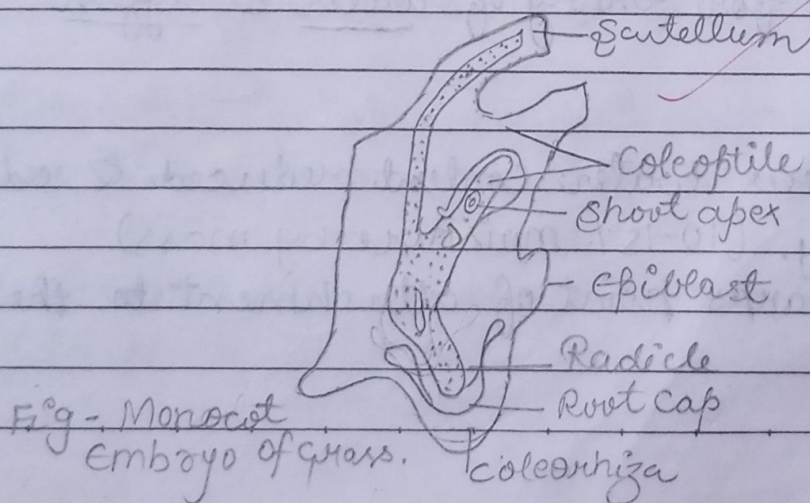 Scutellum
Coleoptile
Shoot apex
Epiblast
Radicle
Root Cap
Coleorhiza
Fig - Monocot
Embryo of grass.